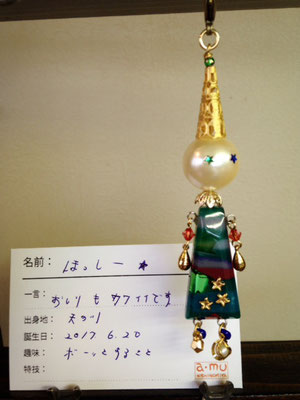 名前： ほっしー ★
一言： おしりもカワイイです
出身地： 天の川
誕生日： 2017 6.20
趣味： ボーッとすること
特技：
a・mu